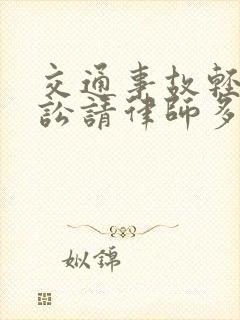 交通事故輕
訟請律師多
姒錦